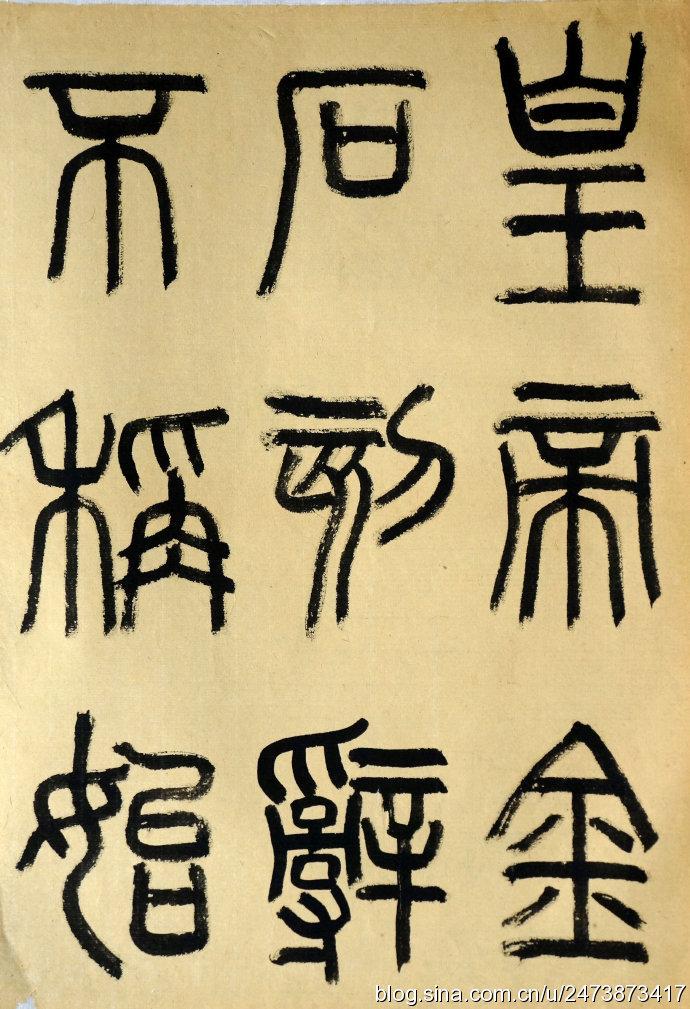 皇帝金
石刻辭
不稱始
blog.sina.com.cn/u/2473873417